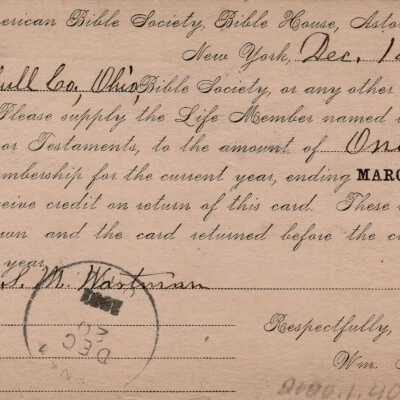 erican Bible Society, Bible House, Astor
New York, Dec. 12
ull Co, Ohio, Bible Society, or any other
Please supply the Life Member named
or Testaments, to the amount of One
mbership for the current year, ending MARC
eive credit on return of this card. These
wn and the card returned before the c
year.
S. M. Wartman
DEC
Respectfully,
Wm.